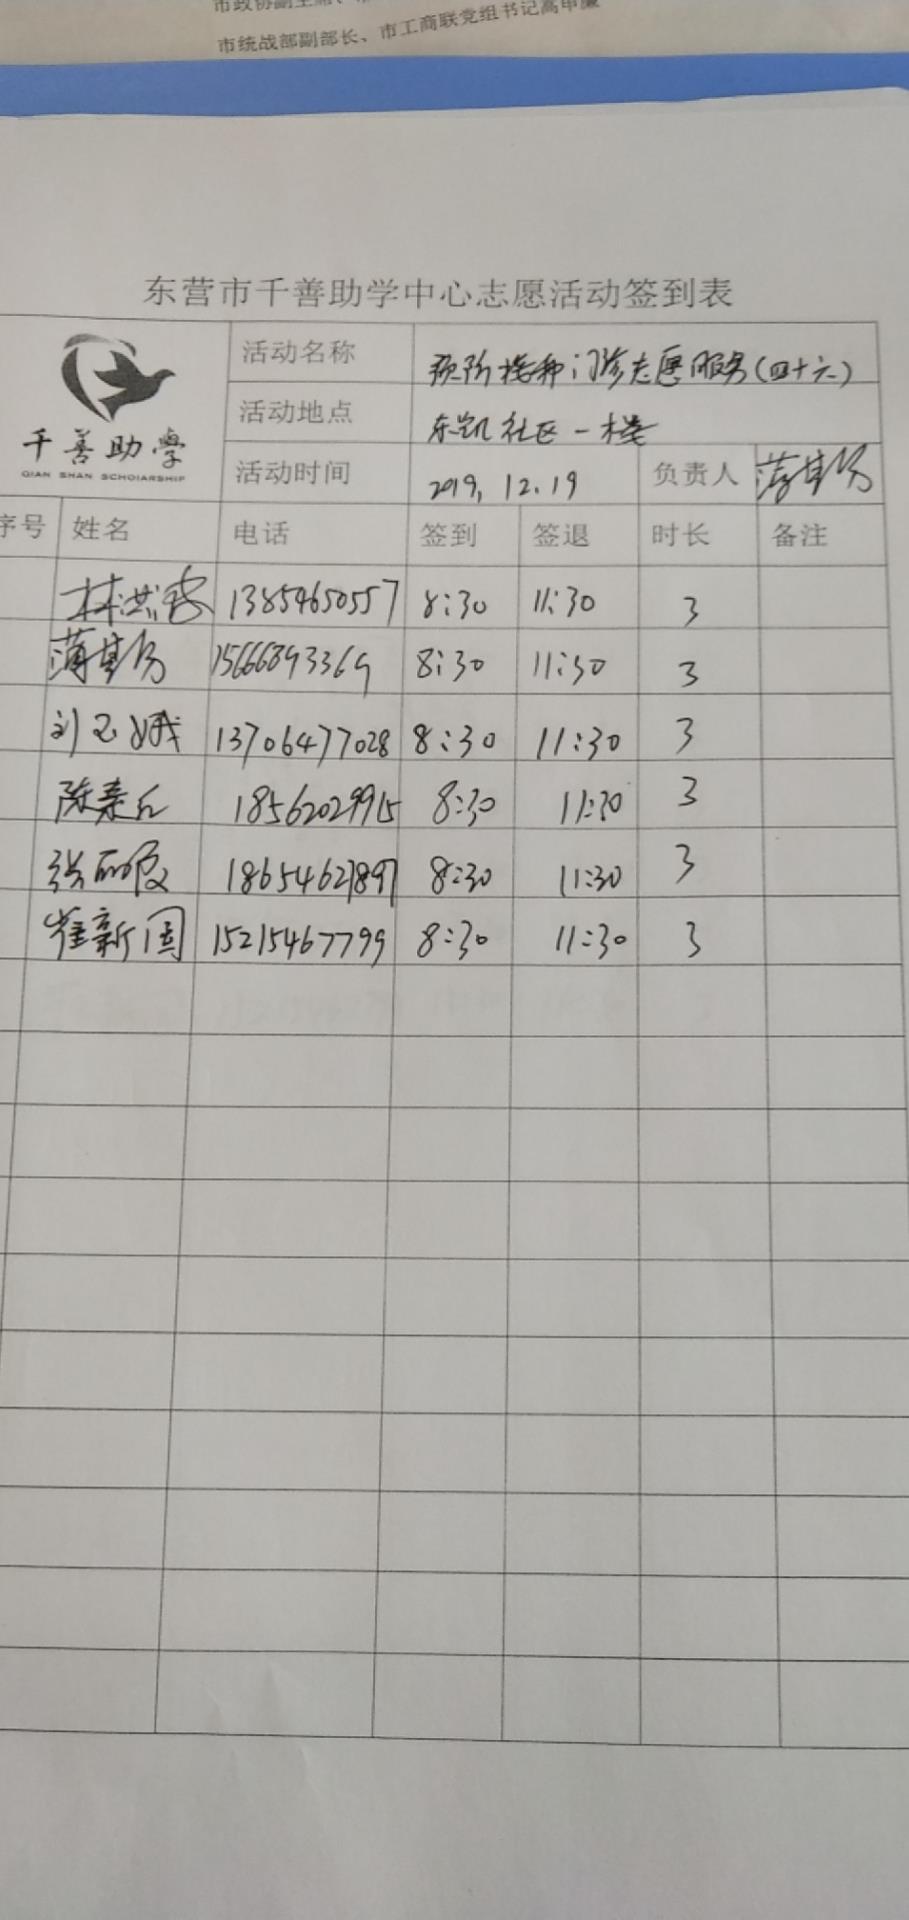 市政协副主席、
市统战部副部长、市工商联党组书记高申廉
东营市千善助学中心志愿活动签到表
千善助学
QIAN SHAN SCHOIARSHIP
活动名称 预防接种门诊志愿服务(四十六)
活动地点 东凯社区一楼
活动时间 2019.12.19 负责人 薄其贞
序号 姓名 电话 签到 签退 时长 备注
林洪 13854650557 8:30 11:30 3
薄其贞 15666893369 8:30 11:30 3
刘玉娥 13706477028 8:30 11:30 3
陈秉 18562029915 8:30 11:30 3
张丽霞 18654627897 8:30 11:30 3
崔新国 15215467799 8:30 11:30 3